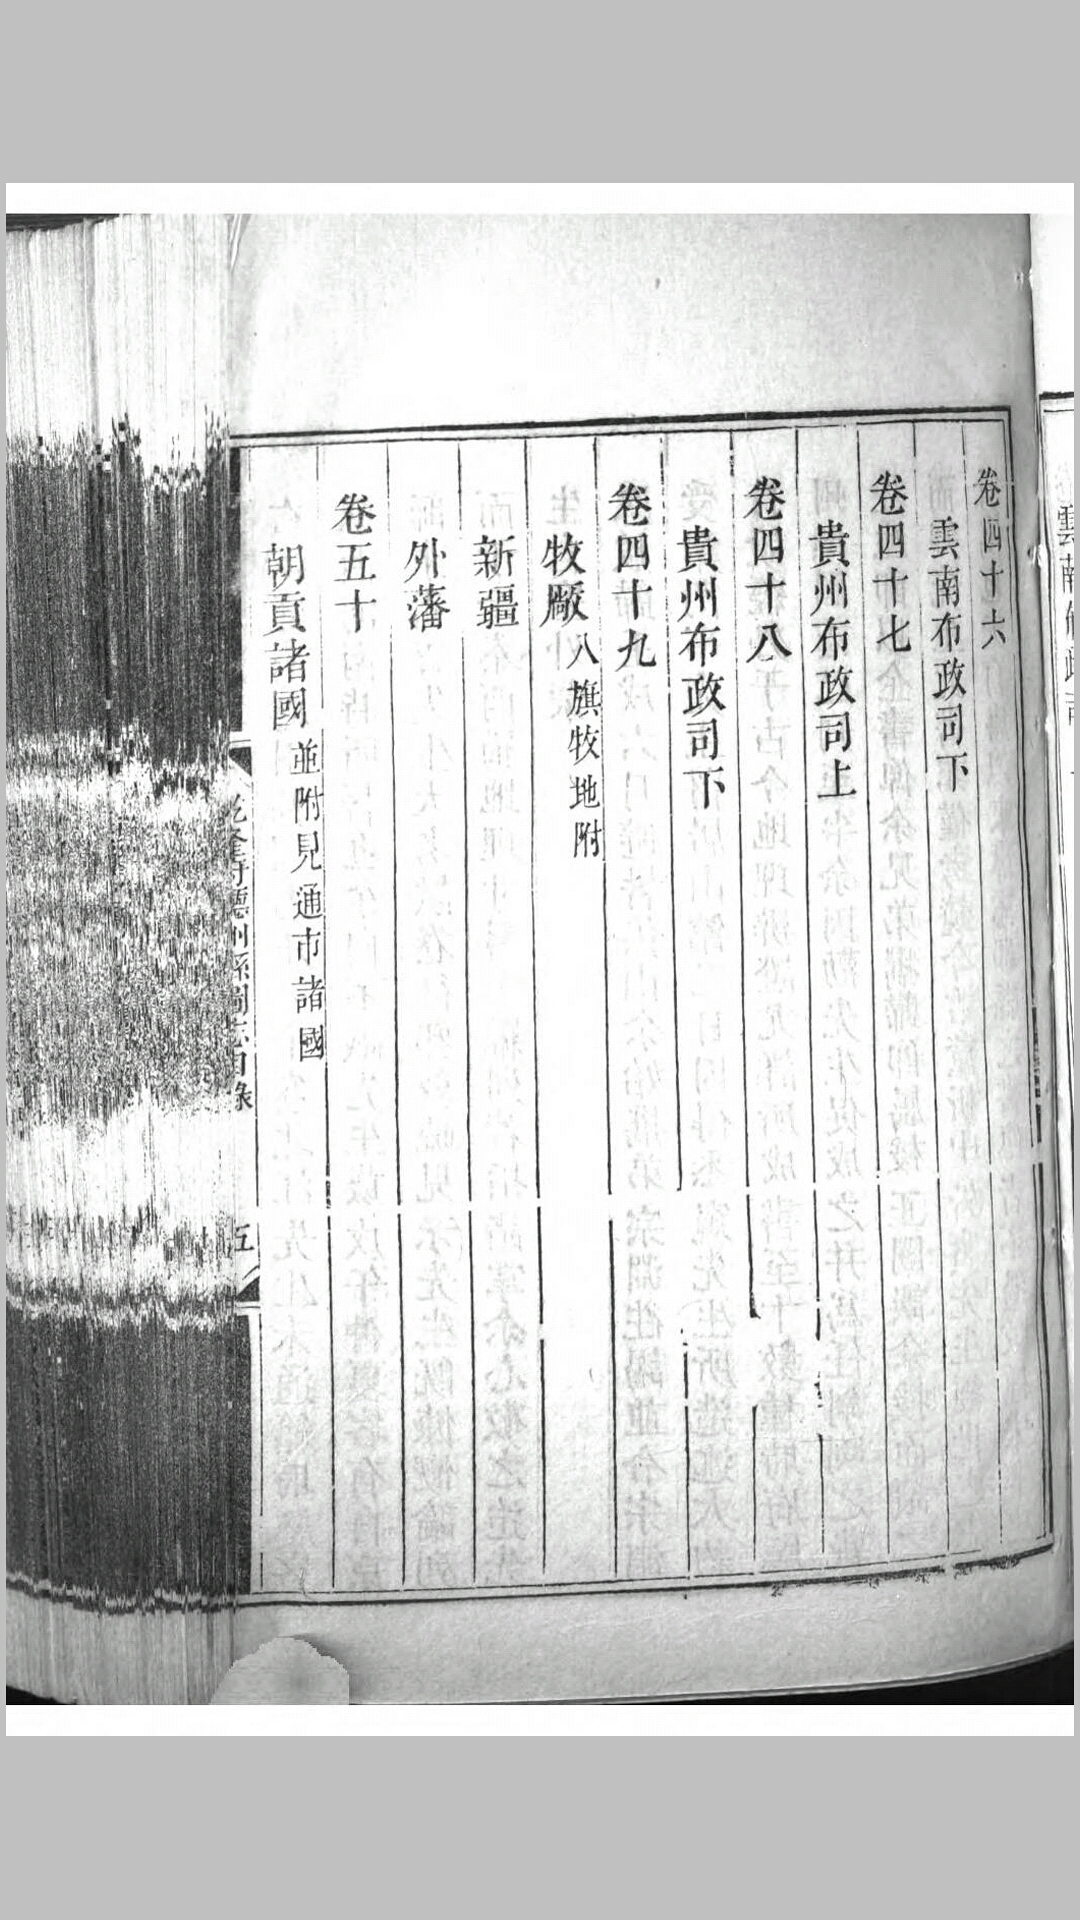 卷四十六
雲南布政司下
卷四十七
貴州布政司上
卷四十八
貴州布政司下
卷四十九
牧廠八旗牧地附
新疆
外藩
卷五十
朝貢諸國並附見通市諸國
五